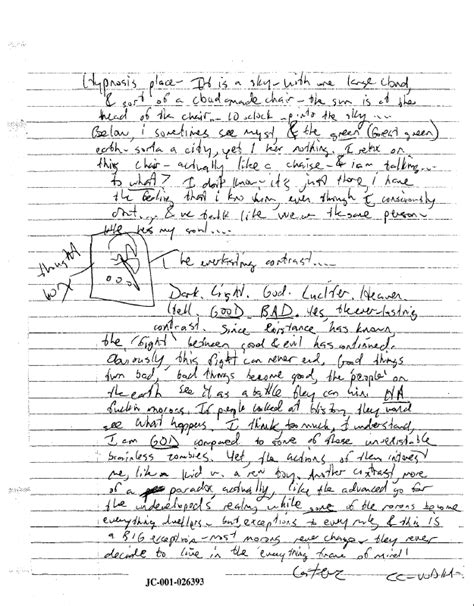 Hypnosis place - It is a sky - with one large cloud,
& sort of a cloud-made chair - the sun is at the
head of the chair... 10 o'clock into the sky...
Below, i sometimes see myst, & the green (Great green)
earth - sorta a city, yet I hear nothing. I relax on
this chair - actually like a chaise - & i am talking...
to what? I don't know - it's just there, i have
the feeling that i know him, even though I consciously
dont... & we talk like we're the same person -
like his my soul....
The everlasting contrast....
thought
box
Dark. Light. God. Lucifer. Heaven.
Hell. GOOD. BAD. Yes, the ever-lasting
contrast. Since existance has known,
the 'fight' between good & evil has continued.
Obviously, this fight can never end. Good things
turn bad, bad things become good, the 'people' on
the earth see it as a battle they can win. HA
fuckin morons. If people looked at history, they would
see what happens. I think, too much, I understand,
I am GOD compared to some of those un-existable
brainless zombies. Yet, the actions of them interest
me, like a kid w. a new toy. Another contrast, more
of a paradox actually, like the advanced go for
the undeveloped's realm, while some of the morons become
everything dwellers - but exceptions to every rule, & this IS
a BIG exception - most morons never change. they never
decide to live in the 'everything' frame of mind!
JC-001-026393